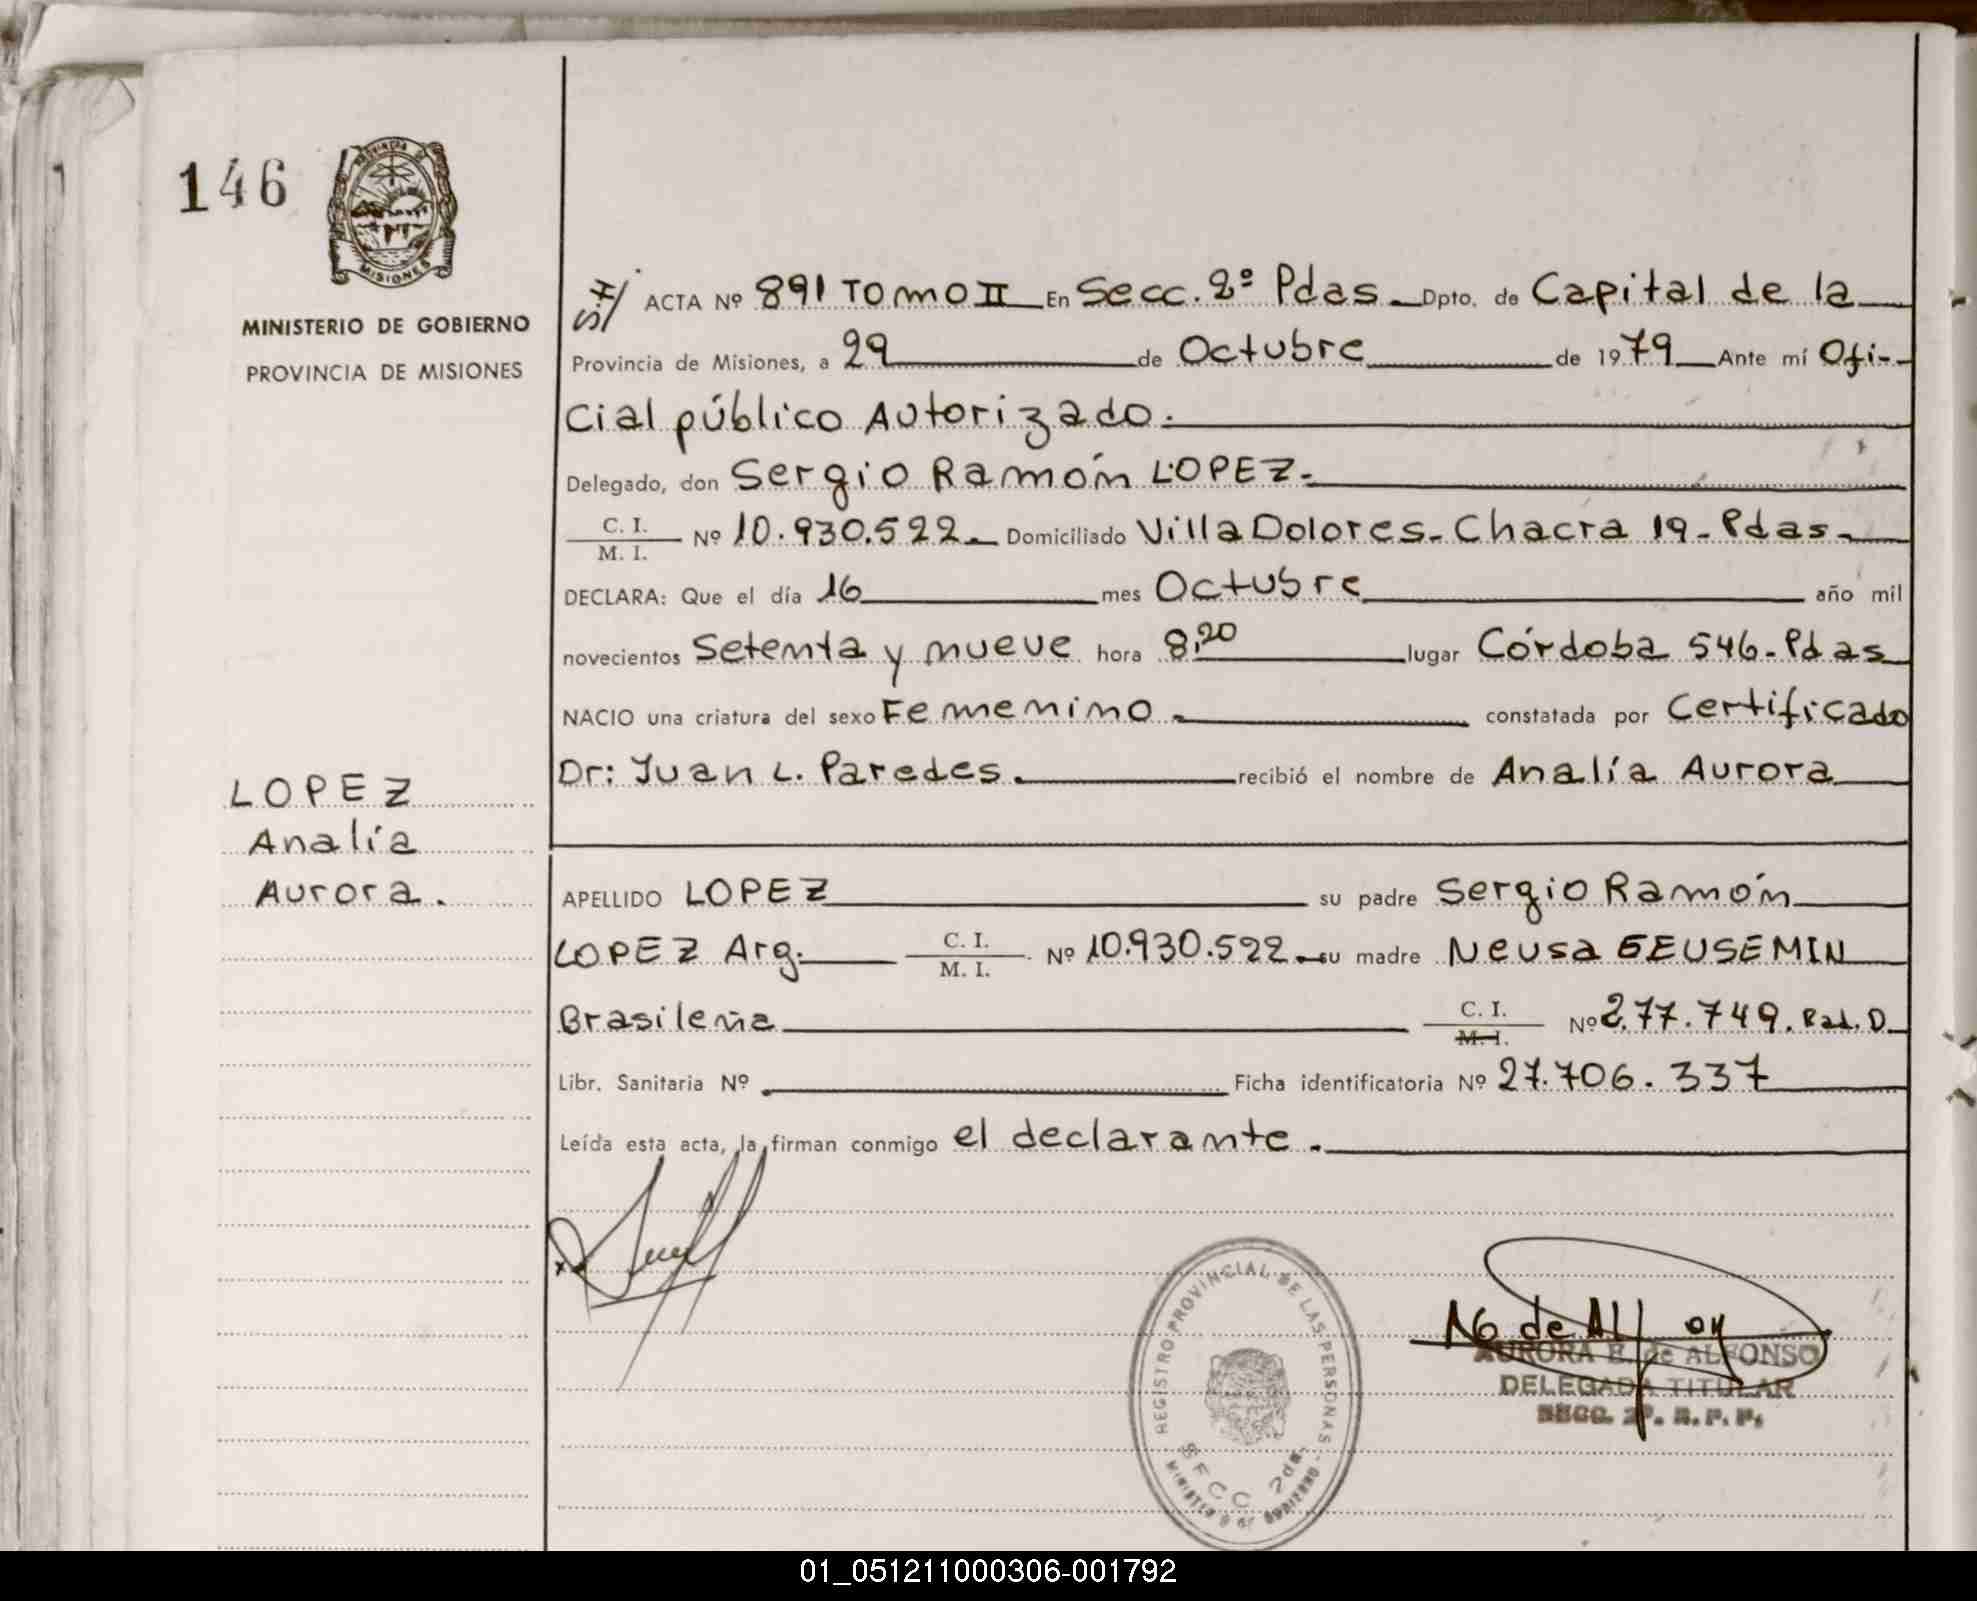 146
PROVINCIA DE
MISIONES
MINISTERIO DE GOBIERNO
PROVINCIA DE MISIONES
LOPEZ
Analía
Aurora.
ACTA Nº 891 Tomo II En Secc. 2º Pdas Dpto. de Capital de la
Provincia de Misiones, a 29 de Octubre de 1979 Ante mí Ofi-
cial público Autorizado.
Delegado, don Sergio Ramón LOPEZ.
C. I.
M. I. Nº 10.930.522. Domiciliado Villa Dolores. Chacra 19. Pdas.
DECLARA: Que el día 16 mes Octubre año mil
novecientos Setenta y nueve hora 8,20 lugar Córdoba 546. Pdas
NACIO una criatura del sexo Femenino. constatada por Certificado
Dr: Juan L. Paredes. recibió el nombre de Analía Aurora
APELLIDO LOPEZ su padre Sergio Ramón
LOPEZ Arg. C. I.
M. I. Nº 10.930.522. su madre Neusa GEUSEMIN
Brasileña C. I.
M. I. Nº 277.749. Rad. D.
Libr. Sanitaria Nº Ficha identificatoria Nº 27.706.337
Leída esta acta, la firman conmigo el declarante.
REGISTRO PROVINCIAL DE LAS PERSONAS
SECC 2da.
MINISTERIO DE GOBIERNO
AURORA E. de ALFONSO
DELEGADA TITULAR
SECC. 2ª. R. P. P.
01_051211000306-001792